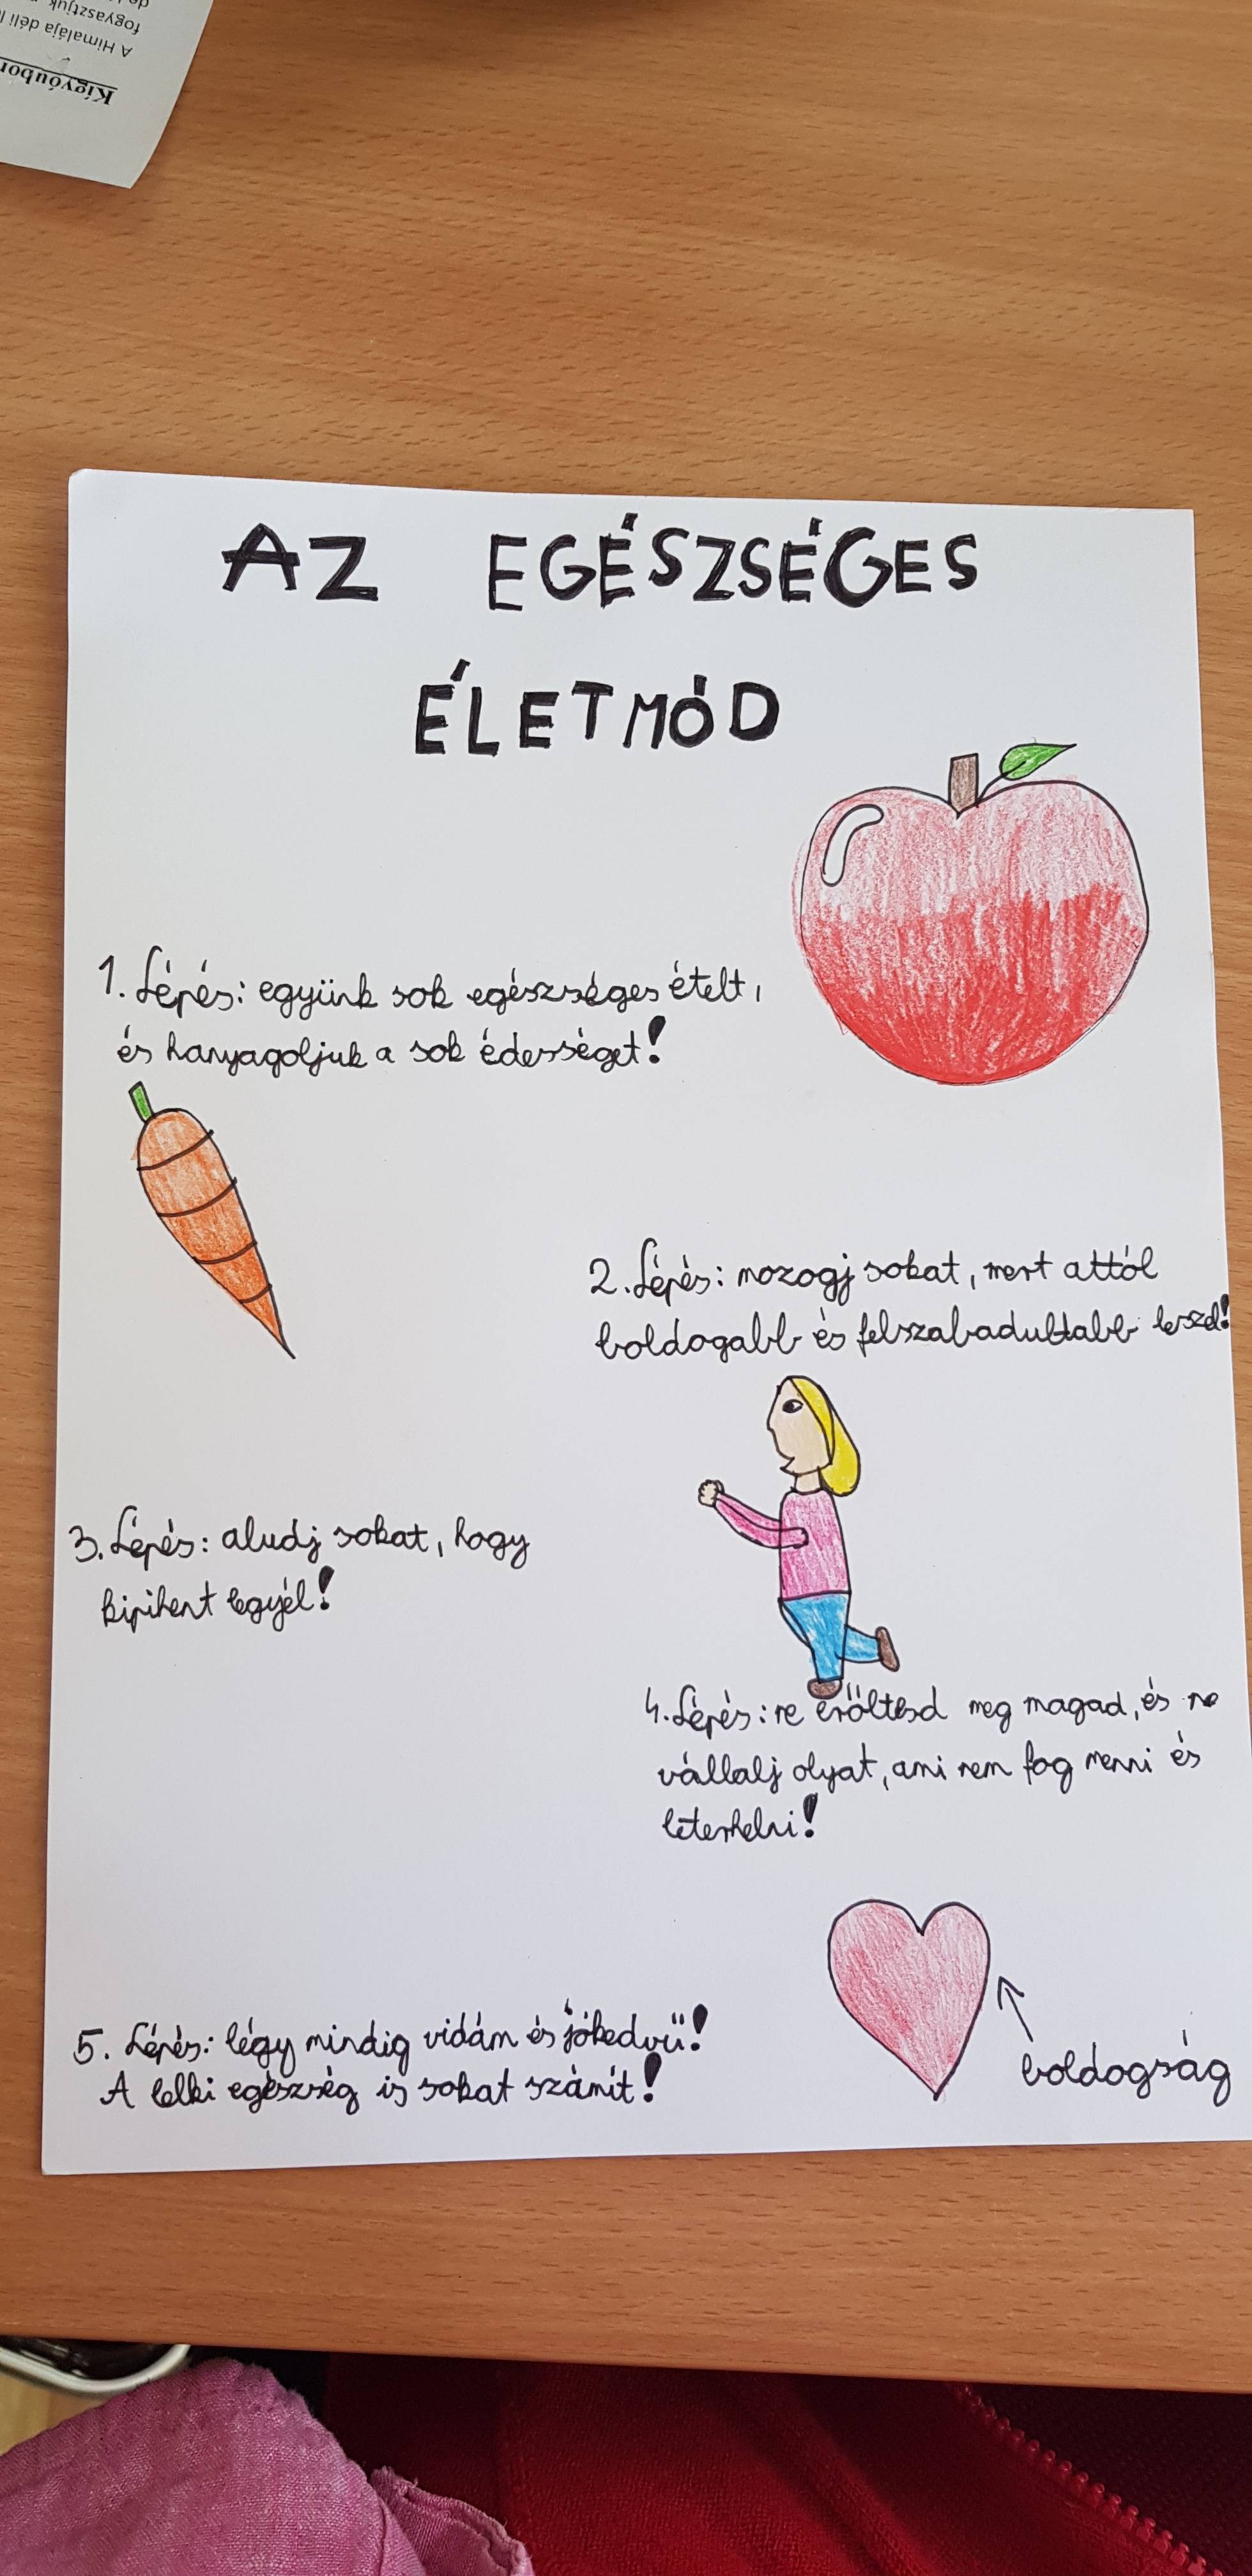 Kígyóubor
A Himalája déli l
fogyasztjuk
AZ EGÉSZSÉGES
ÉLETMÓD
1. Lépés: együnk sok egészséges ételt,
és hanyagoljuk a sok édességet!
2. Lépés: mozogj sokat, mert attól
boldogabb és felszabadultabb leszel!
3. Lépés: aludj sokat, hogy
kipihent legyél!
4. Lépés: ne erőltesd meg magad, és ne
vállalj olyat, ami nem fog menni és
leterhelni!
5. Lépés: légy mindig vidám és jókedvű!
A lelki egészség is sokat számít!
boldogság